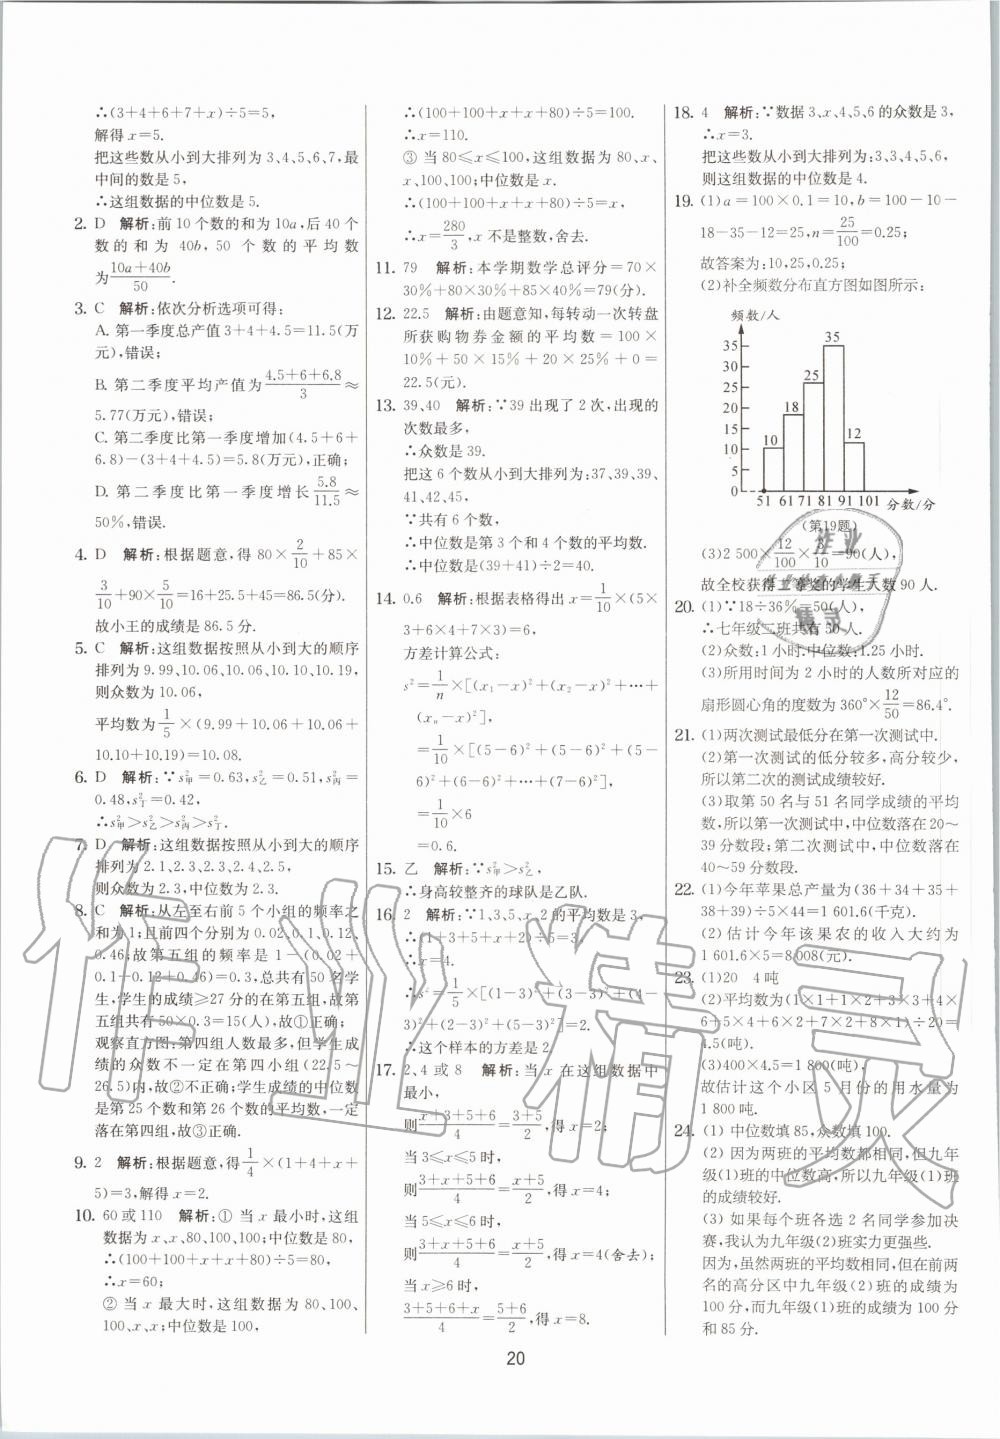 ∴(3+4+6+7+x)÷5=5,
解得 x=5.
把这些数从小到大排列为 3、4、5、6、7,最
中间的数是 5,
∴这组数据的中位数是 5.
2. D 解析:前 10 个数的和为 10a,后 40 个
数的和为 40b, 50 个数的平均数
为(10a+40b)/50.
3. C 解析:依次分析选项可得:
A. 第一季度总产值 3+4+4.5=11.5(万
元),错误;
B. 第二季度平均产值为(4.5+6+6.8)/3≈
5.77(万元),错误;
C. 第二季度比第一季度增加(4.5+6+
6.8)-(3+4+4.5)=5.8(万元),正确;
D. 第二季度比第一季度增长5.8/11.5≈
50%,错误.
4. D 解析:根据题意,得 80×2/10+85×
3/10+90×5/10=16+25.5+45=86.5(分).
故小王的成绩是 86.5 分.
5. C 解析:这组数据按照从小到大的顺序
排列为 9.99、10.06、10.06、10.10、10.19,
则众数为 10.06,
平均数为1/5×(9.99+10.06+10.06+
10.10+10.19)=10.08.
6. D 解析:∵s²甲=0.63,s²乙=0.51,s²丙=
0.48,s²丁=0.42,
∴s²甲>s²乙>s²丙>s²丁.
7. D 解析:这组数据按照从小到大的顺序
排列为 2.1、2.3、2.3、2.4、2.5,
则众数为 2.3,中位数为 2.3.
8. C 解析:从左至右前 5 个小组的频率之
和为 1;且前四个分别为 0.02、0.1、0.12、
0.46;故第五组的频率是 1-(0.02+
0.1+0.12+0.46)=0.3,总共有 50 名学
生,学生的成绩≥27 分的在第五组,故第
五组共有 50×0.3=15(人),故①正确;
观察直方图:第四组人数最多,但学生成
绩的众数不一定在第四小组(22.5~
26.5)内,故②不正确;学生成绩的中位数
是第 25 个数和第 26 个数的平均数,一定
落在第四组,故③正确.
9. 2 解析:根据题意,得1/4×(1+4+x+
5)=3,解得 x=2.
10. 60 或 110 解析:① 当 x 最小时,这组
数据为 x、80、100、100;中位数是 80,
∴(100+100+x+x+80)÷5=80,
∴x=60;
② 当 x 最大时,这组数据为 80、100、
100、x、x;中位数是 100,
∴(100+100+x+x+80)÷5=100.
∴x=110.
③ 当 80≤x≤100,这组数据为 80、x、
x、100、100,中位数是 x.
∴(100+100+x+x+80)÷5=x.
∴x=280/3,x 不是整数,舍去.
11. 79 解析:本学期数学总评分=70×
30%+80×30%+85×40%=79(分).
12. 22.5 解析:由题意知,每转动一次转盘
所获购物券金额的平均数=100×
10%+50×15%+20×25%+0=
22.5(元).
13. 39、40 解析:∵39 出现了 2 次,出现的
次数最多,
∴众数是 39.
把这 6 个数从小到大排列为:37、39、39、
41、42、45,
∵共有 6 个数,
∴中位数是第 3 个和 4 个数的平均数.
∴中位数是(39+41)÷2=40.
14. 0.6 解析:根据表格得出 x=1/10×(5×
3+6×4+7×3)=6,
方差计算公式:
s²=1/n×[(x₁-x)²+(x₂-x)²+…+
(xₙ-x)²],
=1/10×[(5-6)²+(5-6)²+(5-
6)²+(6-6)²+…+(7-6)²],
=1/10×6
=0.6.
15. 乙 解析:∵s²甲>s²乙,
∴身高较整齐的球队是乙队.
16. 2 解析:∵1、3、5、x、2 的平均数是 3,
∴(1+3+5+x+2)÷5=3.
∴x=4.
∴s²=1/5×[(1-3)²+(3-3)²+(4-
3)²+(2-3)²+(5-3)²]=2.
∴这个样本的方差是 2.
17. 2、4 或 8 解析:当 x 在这组数据中
最小,
则(x+3+5+6)/4=(3+5)/2,得 x=2;
当 3≤x≤5 时,
则(3+x+5+6)/4=(x+5)/2,得 x=4;
当 5≤x≤6 时,
则(3+x+5+6)/4=(x+5)/2,得 x=4(舍去);
当 x≥6 时,
(3+5+6+x)/4=(5+6)/2,得 x=8.
18. 4 解析:∵数据 3、x、4、5、6 的众数是 3,
∴x=3.
把这组数据从小到大排列为:3、3、4、5、6,
则这组数据的中位数是 4.
19. (1)a=100×0.1=10,b=100-10-
18-35-12=25,n=25/100=0.25;
故答案为:10,25,0.25;
(2)补全频数分布直方图如图所示:
频数/人
35
30
25
20
15
10
5
0
10
18
25
35
12
51 61 71 81 91 101 分数/分
(第19题)
(3)2 500×12/100×3/10=90(人),
故全校获得二等奖的学生人数 90 人.
20. (1)∵18÷36%=50(人),
∴七年级二班共有 50 人.
(2)众数:1 小时.中位数:1.25 小时.
(3)所用时间为 2 小时的人数所对应的
扇形圆心角的度数为 360°×12/50=86.4°.
21. (1)两次测试最低分在第一次测试中.
(2)第一次测试的低分较多,高分较少,
所以第二次的测试成绩较好.
(3)取第 50 名与 51 名同学成绩的平均
数,第一次测试中,中位数落在 20~
39 分数段;第二次测试中,中位数落在
40~59 分数段.
22. (1)今年苹果总产量为(36+34+35+
38+39)÷5×44=1 601.6(千克).
(2)估计今年该果农的收入大约为
1 601.6×5=8 008(元).
23. (1)20 4 吨
(2)平均数为(1×1+1×2+3×3+4×
6+5×4+6×2+7×2+8×1)÷20=
4.5(吨).
(3)400×4.5=1 800(吨).
故估计这个小区 5 月份的用水量为
1 800吨.
24. (1) 中位数填 85,众数填 100.
(2) 因为两班的平均数都相同,但九年
级(1)班的中位数高,所以九年级(1)班
的成绩较好.
(3) 如果每班各选 2 名同学参加决
赛,我认为九年级(2)班实力更强些.
因为,虽然两班的平均数相同,但在前两
名的高分区中九年级(2)班的成绩为
100 分,而九年级(1)班的成绩为 100 分
和 85 分.
20
作业精灵